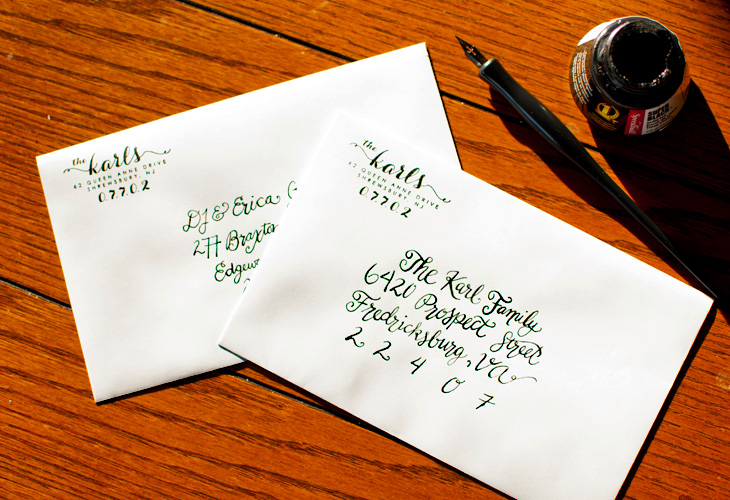 the
karls
42 QUEEN ANNE DRIVE
SHREWSBURY, NJ
07702
DJ & Erica
277 Braxto
Edgew
the
karls
42 QUEEN ANNE DRIVE
SHREWSBURY, NJ
07702
The Karl Family
6420 Prospect Street
Fredricksburg, VA
22407